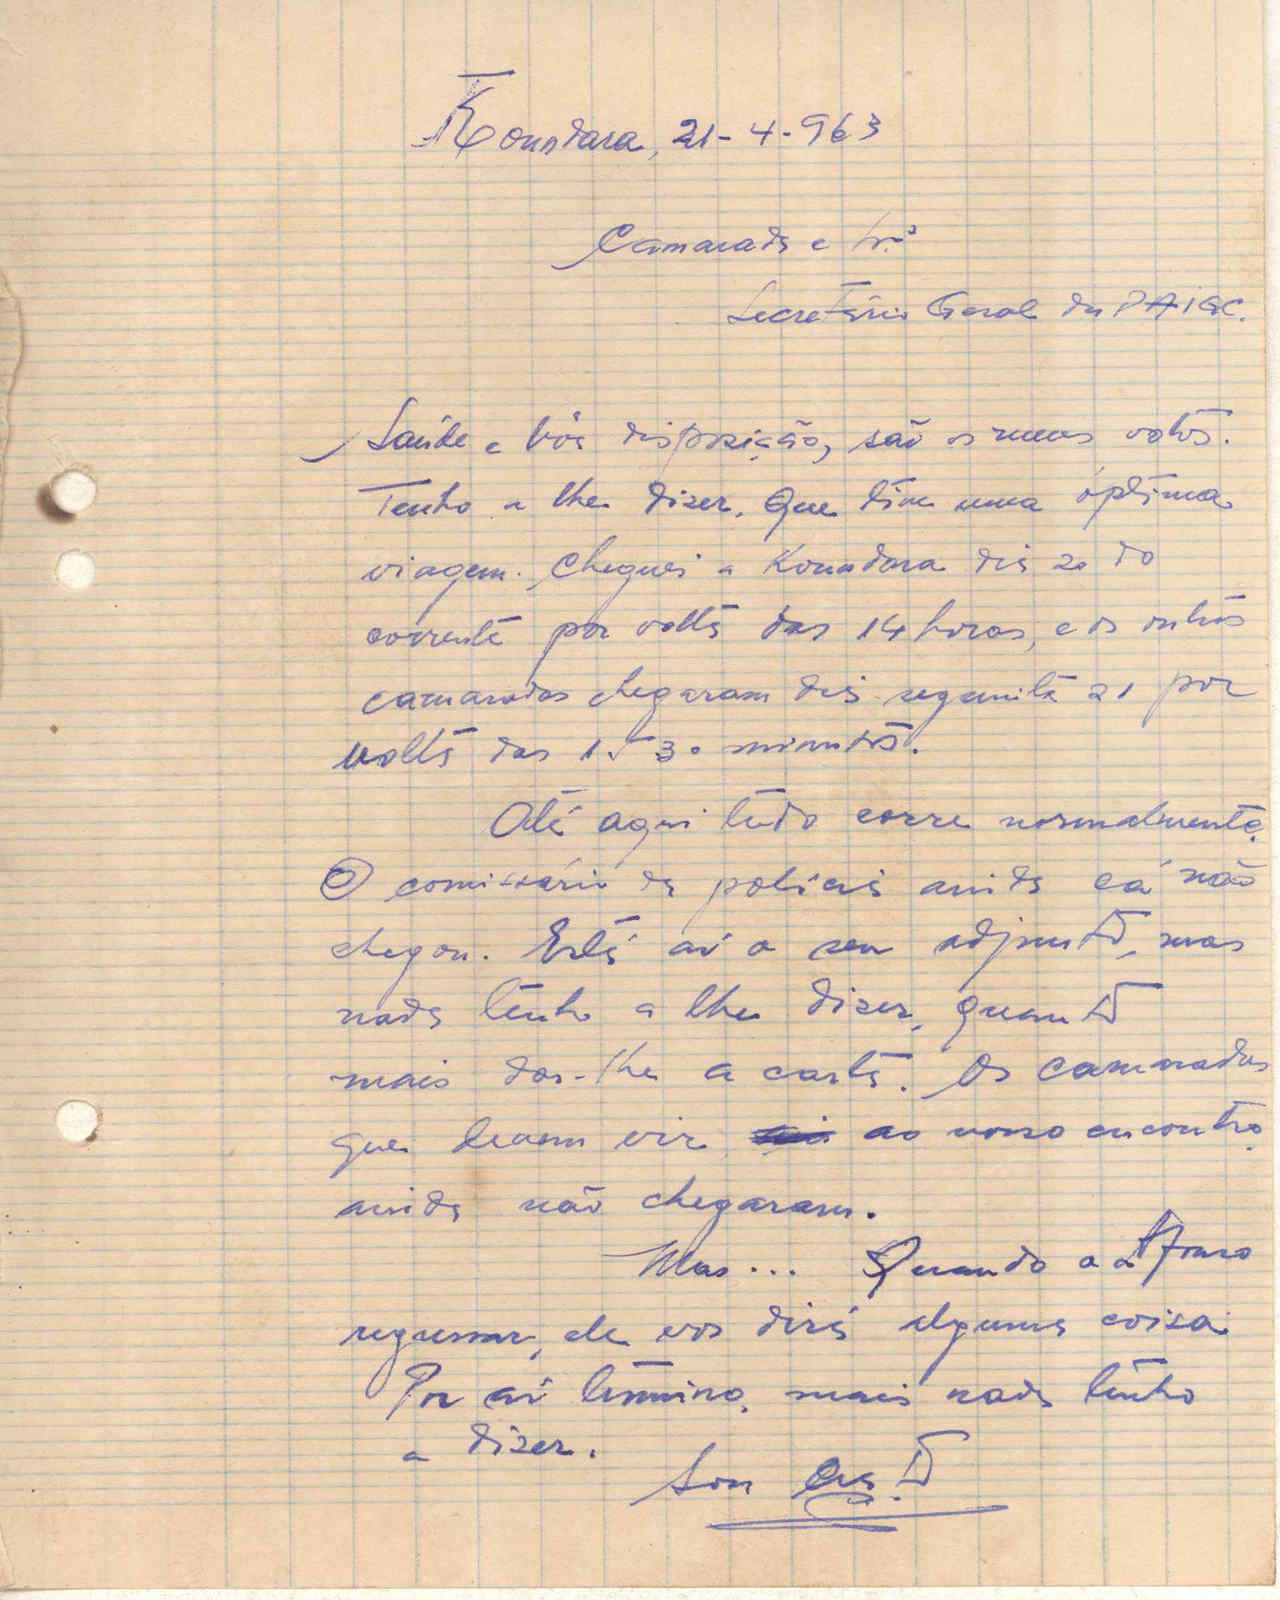 Koundara, 21-4-963
Camarada e Ir.º
Secretário Geral do PAIGC.
Saúde e bôa disposição, são os meus votos.
Tenho a lhe dizer, que tive uma óptima
viagem. Cheguei a Koundara dia 20 do
corrente por volta das 14 horas, e os outros
camaradas chegaram dia seguinte 21 por
volta das 1 30 minutos.
Até aqui tudo corre normalmente.
O comissário da policia ainda cá não
chegou. Está aí o seu adjunto, mas
nada tenho a lhe dizer, quanto
mais dar-lhe a carta. Os camaradas
que devem vir ao nosso encontro
ainda não chegaram.
Mas... Quando o
regressar, ele vos dirá alguma coisa
Por aí termino, mais nada tenho
a dizer.
Sou